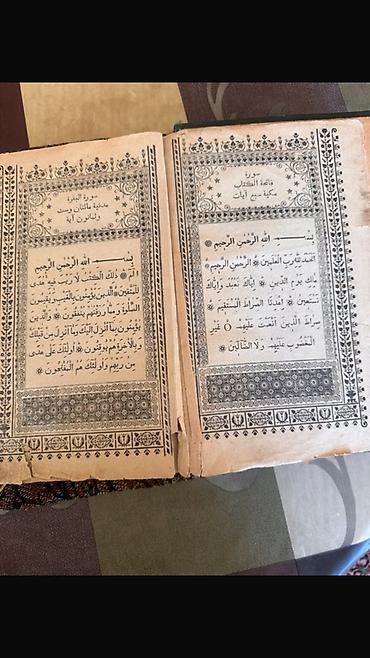 سورة
فاتحة الكتاب
مكية سبع آيات
بسم الله الرحمن الرحيم
الحمد لله رب العلمين الرحمن الرحيم
ملك يوم الدين اياك نعبد واياك
نستعين اهدنا الصراط المستقيم
صراط الذين انعمت عليهم غير
المغضوب عليهم ولا الضالين
سورة البقرة
مدنية مائتان وست
وثمانون آية
بسم الله الرحمن الرحيم
الم ذلك الكتب لا ريب فيه هدى
للمتقين الذين يؤمنون بالغيب ويقيمون
الصلوة ومما رزقنهم ينفقون والذين
يؤمنون بما أنزل اليك وما أنزل من قبلك
وبالآخرة هم يوقنون أولئك على هدى
من ربهم وأولئك هم المفلحون